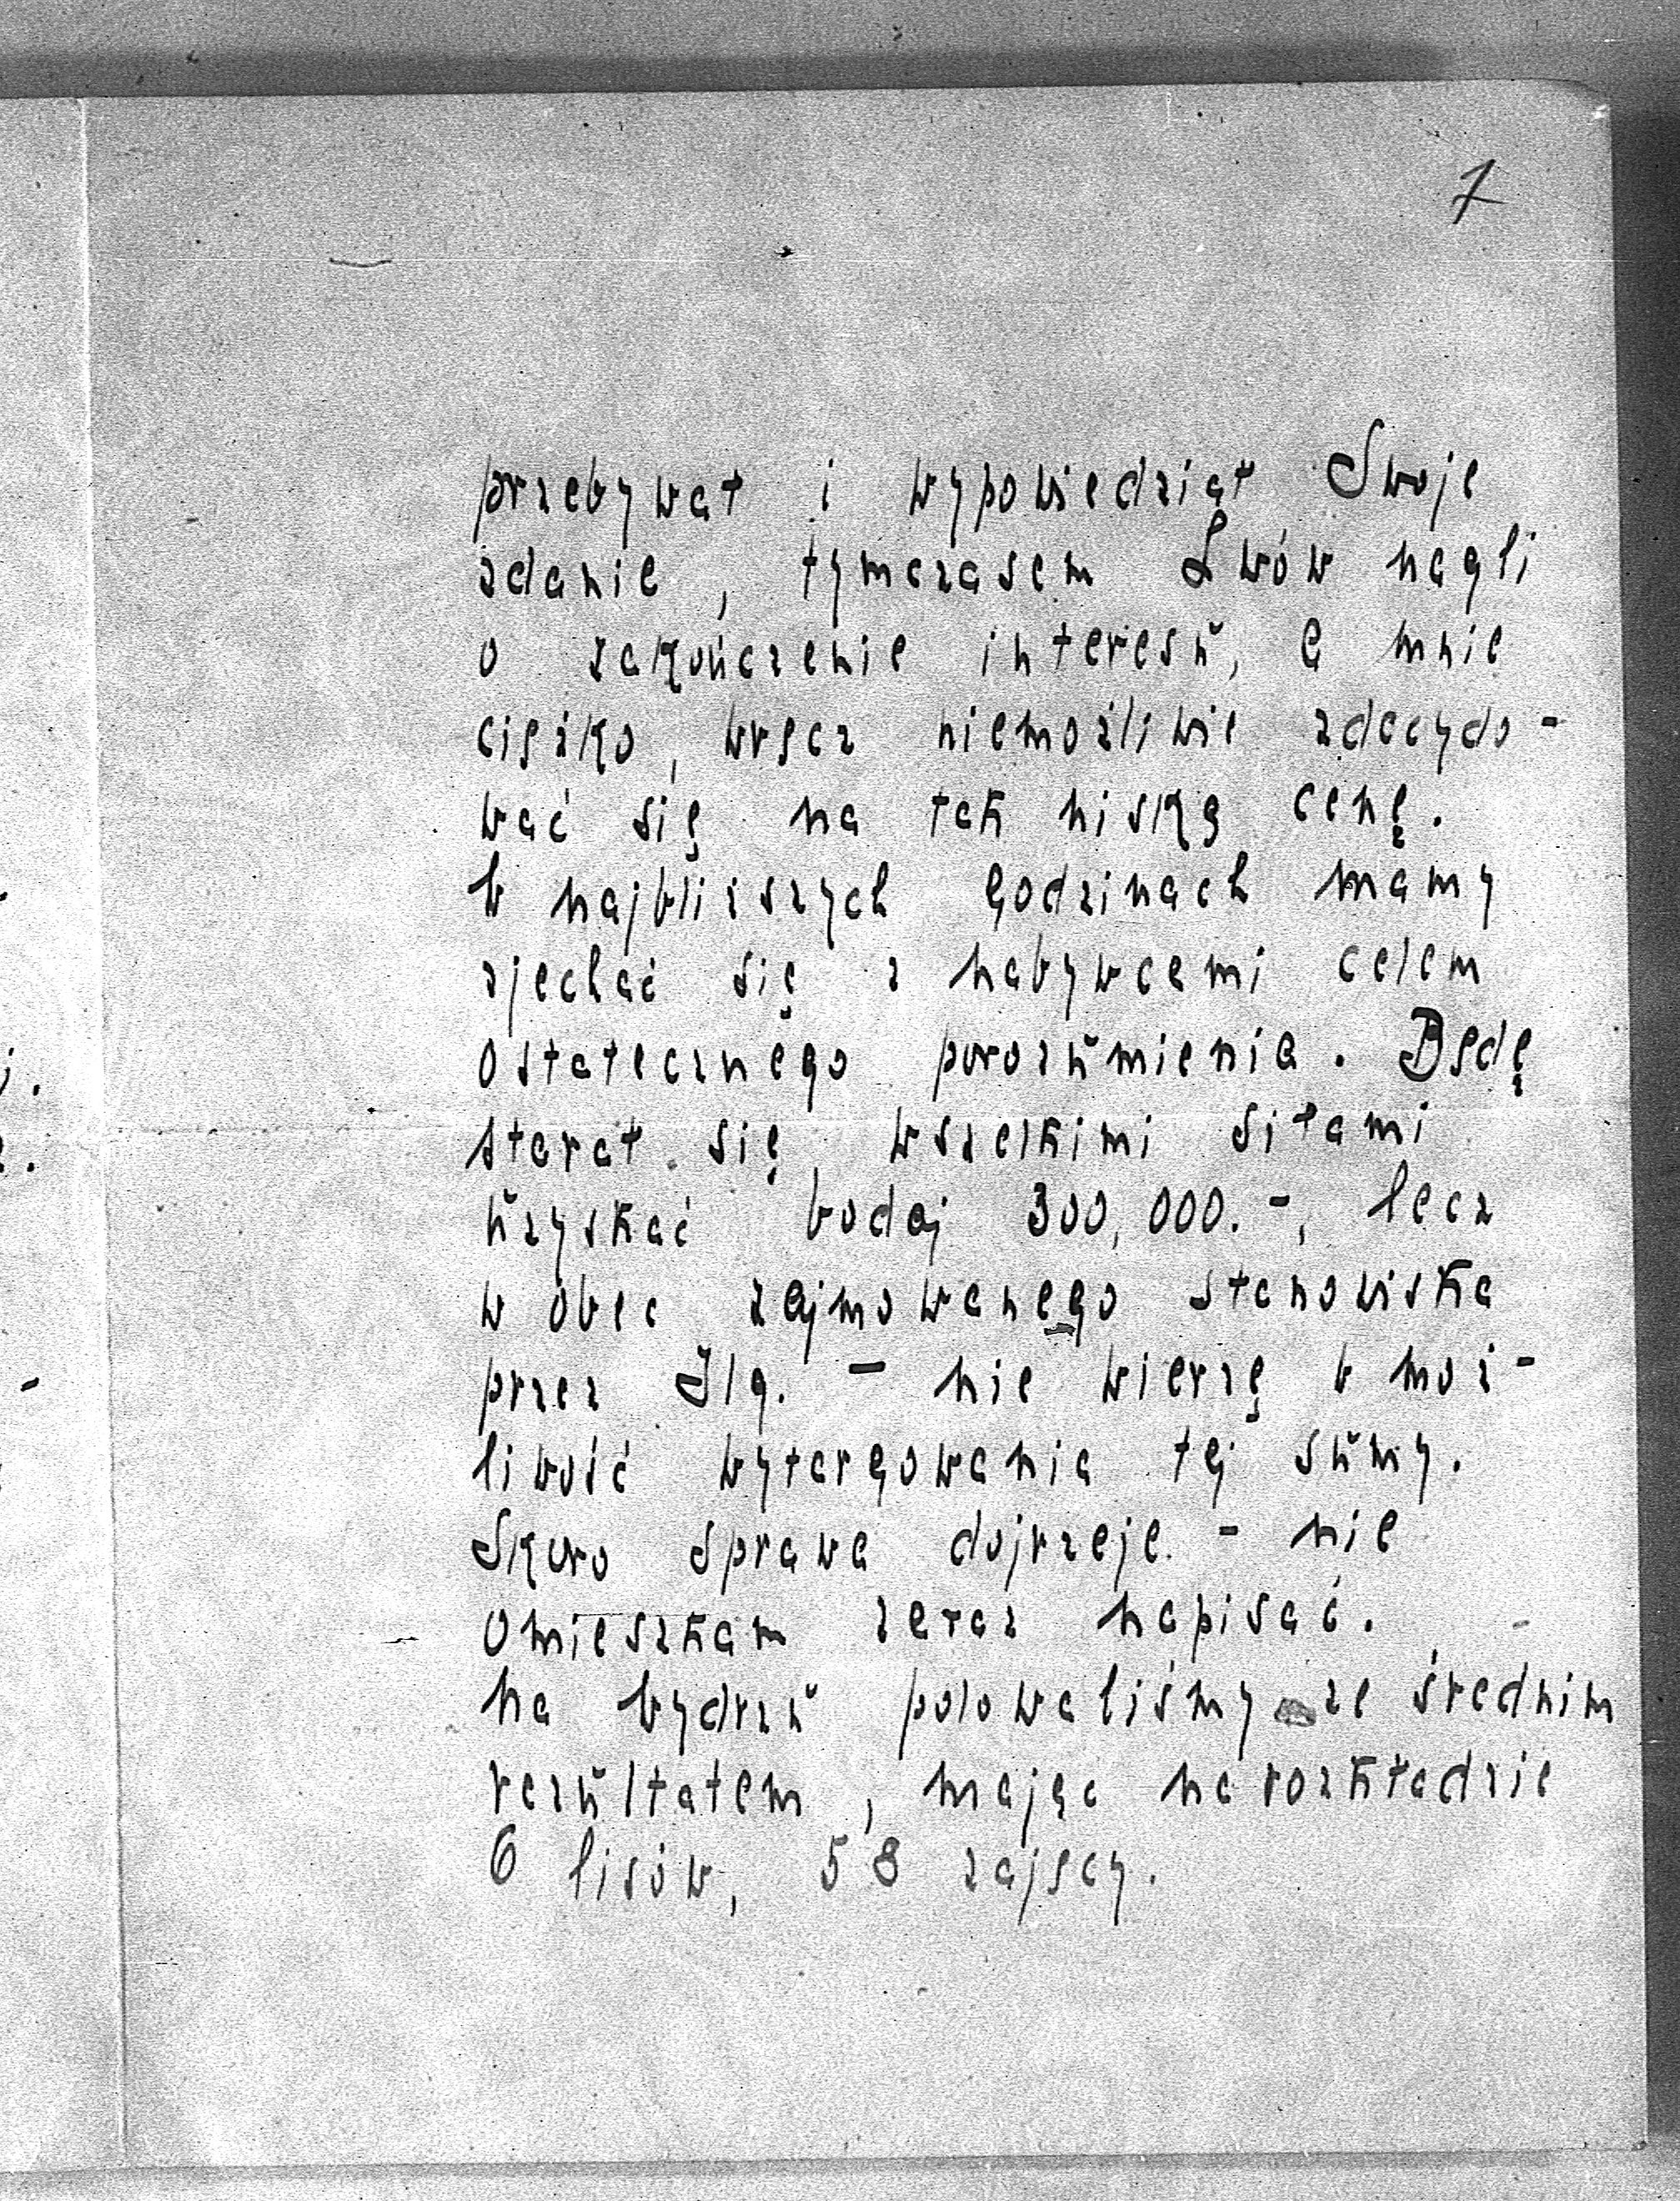 7
przebywał i wypowiedział Swoje
zdanie, tymczasem Lwów nagli
o zakończenie interesu, a mnie
ciężko, wręcz niemożliwie zdecydo-
wać się na tak niską cenę.
W najbliższych godzinach mamy
zjechać się z nabywcami celem
ostatecznego porozumienia. Będę
starał się wszelkimi siłami
uzyskać bodaj 300,000.-, lecz
wobec zajmowanego stanowiska
przez Ilg. - nie wierzę w moż-
liwość wytargowania tej sumy.
Skoro sprawa dojrzeje - nie
omieszkam zaraz napisać.
Na bydrzu polowaliśmy ze średnim
rezultatem, mając na rozkładzie
6 lisów, 58 zajęcy.